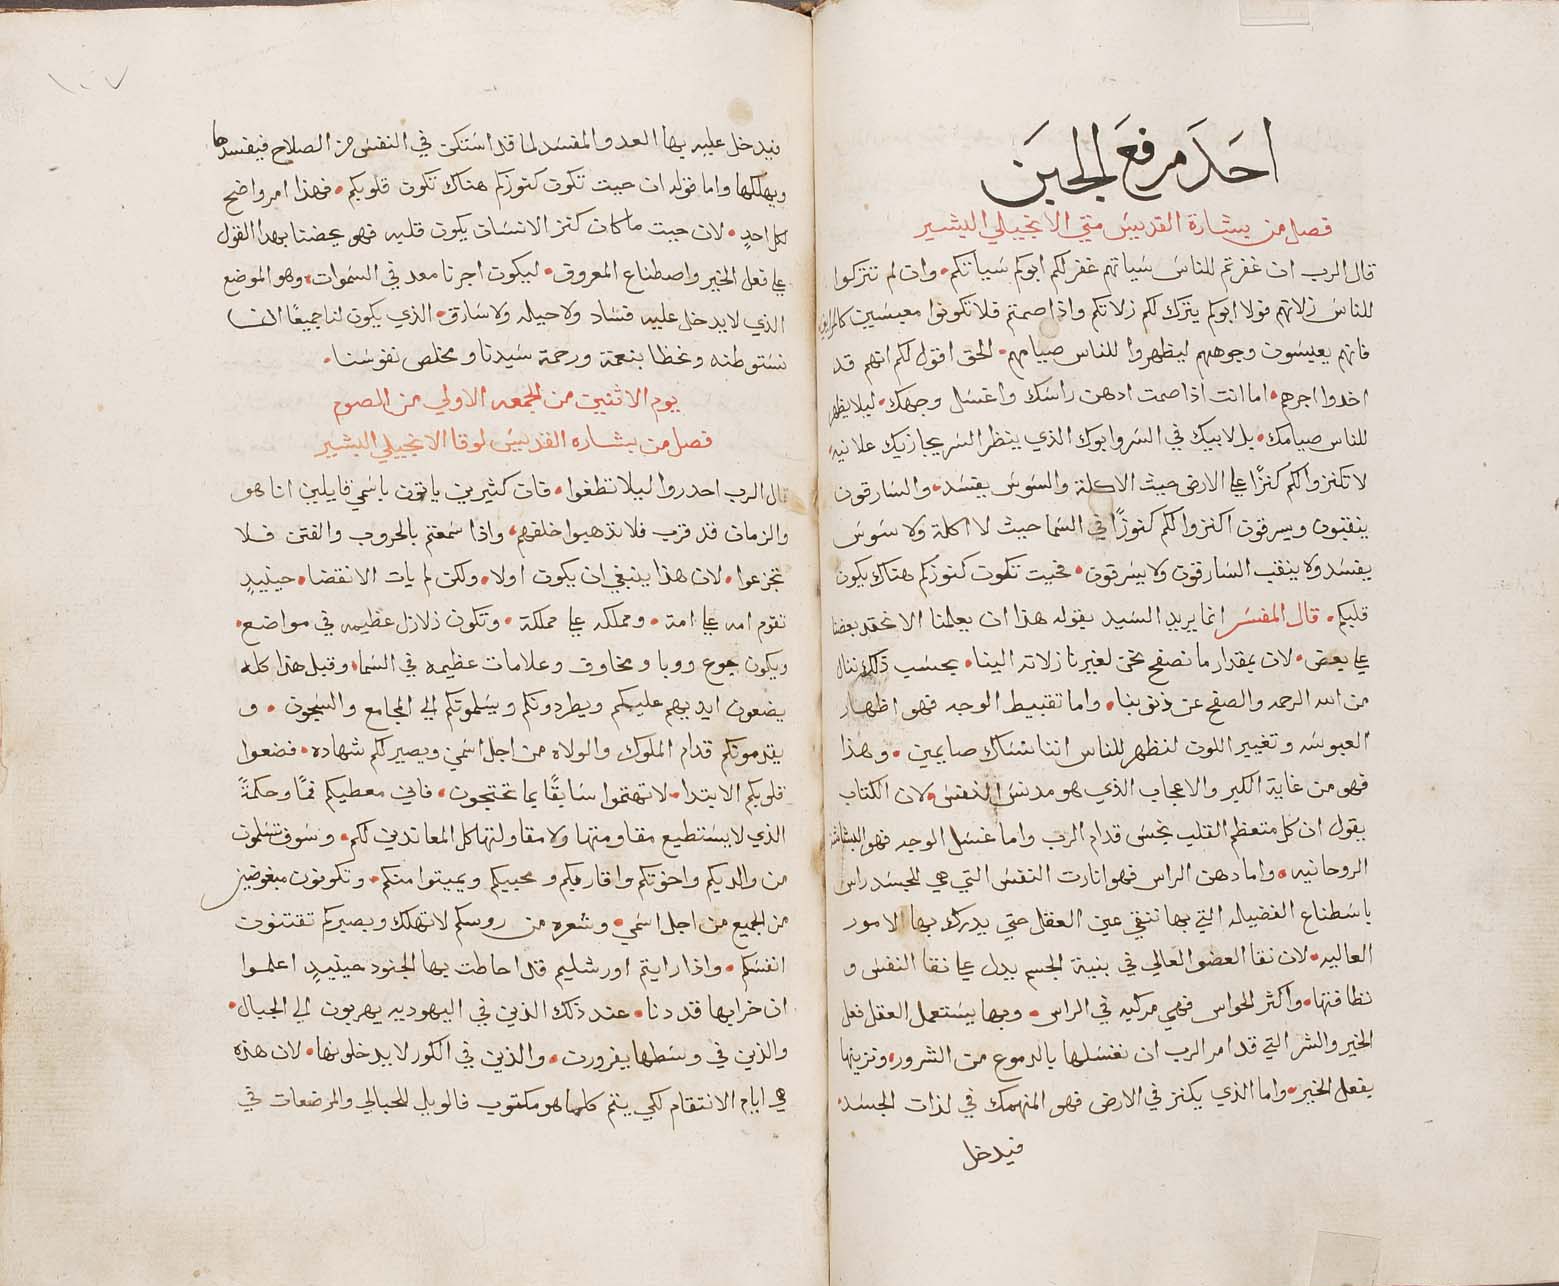 احد مرفع الجبن
فصل من بشارة القديس متي الانجيلي البشير
قال الرب ان غفرتم للناس سياتهم غفر لكم ابوكم سياتكم • وان لم تتركوا
للناس زلاتهم فولا ابوكم يترك لكم زلاتكم واذا صمتم فلا تكونوا معبسين كالمرايين
فانهم يعبسون وجوههم ليظهروا للناس صيامهم • الحق اقول لكم انهم قد
اخدوا اجرهم • اما انت اذا صمت ادهن راسك واغسل وجهك • ليلا يظهر
للناس صيامك • بل لابيك في السر وابوك الذي ينظر السر يجازيك علانيه •
لا تكنزوا لكم كنزًا علي الارض حيث الاكلة والسوس يفسد • والسارقون
ينقبون ويسرقون اكنزوا لكم كنوزًا في السما حيث لا اكلة ولا سوس
يفسد ولا ينقب السارقون ولا يسرقون • فحيت تكون كنوزكم هناك يكون
قلبكم • قال المفسر انما يريد السيد بقوله هذا ان يعلمنا الا نحقد بعضنا
علي بعض • لان بمقدار ما نصفح نحن لغيرنا زلاته الينا • بحسب ذلك ننال
من الله الرحمه والصفح عن ذنوبنا • واما تقبيط الوجه فهو اظهار
العبوسه وتغيير اللون لنظهر للناس اننا نساك صايمين • وهذا
فهو من غاية الكبر والاعجاب الذي هو مدنس النفس • لان الكتاب
يقول ان كل متعظم القلب نجس قدام الرب واما غسل الوجه فهو البشاشه
الروحانيه • واما دهن الراس فهو انارت النفس التي هي للجسد راس
باسطناع الفضيله التي بها تنقي عين العقل حتي يدرك بها الامور
العاليه • لان نقا العضو العالي في بنية الجسم يدل علي نقا النفس و
نظافتها • واكثر الحواس فهي مركبه في الراس • وبها يستعمل العقل فعل
الخير والشر التي قد امر الرب ان نغسلها بالدموع من الشرور • ونزينها
بفعل الخير • واما الذي يكنز في الارض فهو المنهمك في لذات الجسد •
فيدخل
فيدخل عليه بها العدو المفسد لما قد استكن في النفس من الصلاح فيفسدها
ويهلكها واما قوله ان حيت تكون كنوزكم هناك تكون قلوبكم • فهذا امر واضح
لكل احدٍ • لان حيت ما كان كنز الانسان يكون قلبه فهو يحضنا بهدا القول
علي فعل الخير واصطناع المعروف • ليكون اجرنا معد في السموات • وهو الموضع
الذي لا يدخل عليه فساد ولا حيله ولا سارق • الذي يكون لنا جميعًا ان
نستوطنه ونحظا بنعمة ورحمة سيدنا ومخلص نفوسنا •
يوم الاثنين من الجمعه الاولي من الصوم
فصل من بشاره القديس لوقا الانجيلي البشير
قال الرب احدروا ليلا تطغوا • فان كثيرين ياتون باسمي قايلين انا هو
والزمان قد قرب فلا تذهبوا خلفهم • واذا سمعتم بالحروب والفتن فلا
تجزعوا • لان هذا ينبغي ان يكون اولا • ولكن لم يات الانقضا • حينيدٍ
تقوم امه علي امة • ومملكه علي مملكة • وتكون زلازل عظيمه في مواضع •
ويكون جوع ووبا ومخاوف وعلامات عظيمه في السما • وقبل هذا كله
يضعون ايديهم عليكم ويطردونكم ويسلمونكم الي المجامع والسجون • و
يقدمونكم قدام الملوك والولاه من اجل اسمي ويصير لكم شهاده • فضعوا
قلوبكم الابتدا • لا تهتموا سابقًا بما تحتجون • فاني معطيكم فمًا وحكمةً
الذي لا يستطيع مقاومتها ولا مقاولتها كل المعاندين لكم • وسوف تسلمون
من والديكم واخوتكم واقاربكم ومحبيكم ويميتوا منكم • وتكونون مبغوضين
من الجميع من اجل اسمي • وشعره من روسكم لا تهلك وبصبركم تقتنون
انفسكم • واذا رايتم اورشليم قد احاطت بها الجنود حينيدٍ اعلموا
ان خرابها قد دنا • عند ذلك الذين في اليهوديه يهربون الي الجبال •
والذين في وسطها يفرون • والذين في الكور لا يدخلونها • لان هذه
هي ايام الانتقام لكي يتم كلما هو مكتوب فالويل للحبالي والمرضعات في